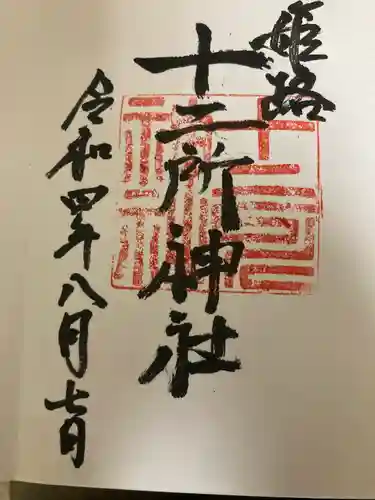 姫路
十二所神社
令和四年八月七日